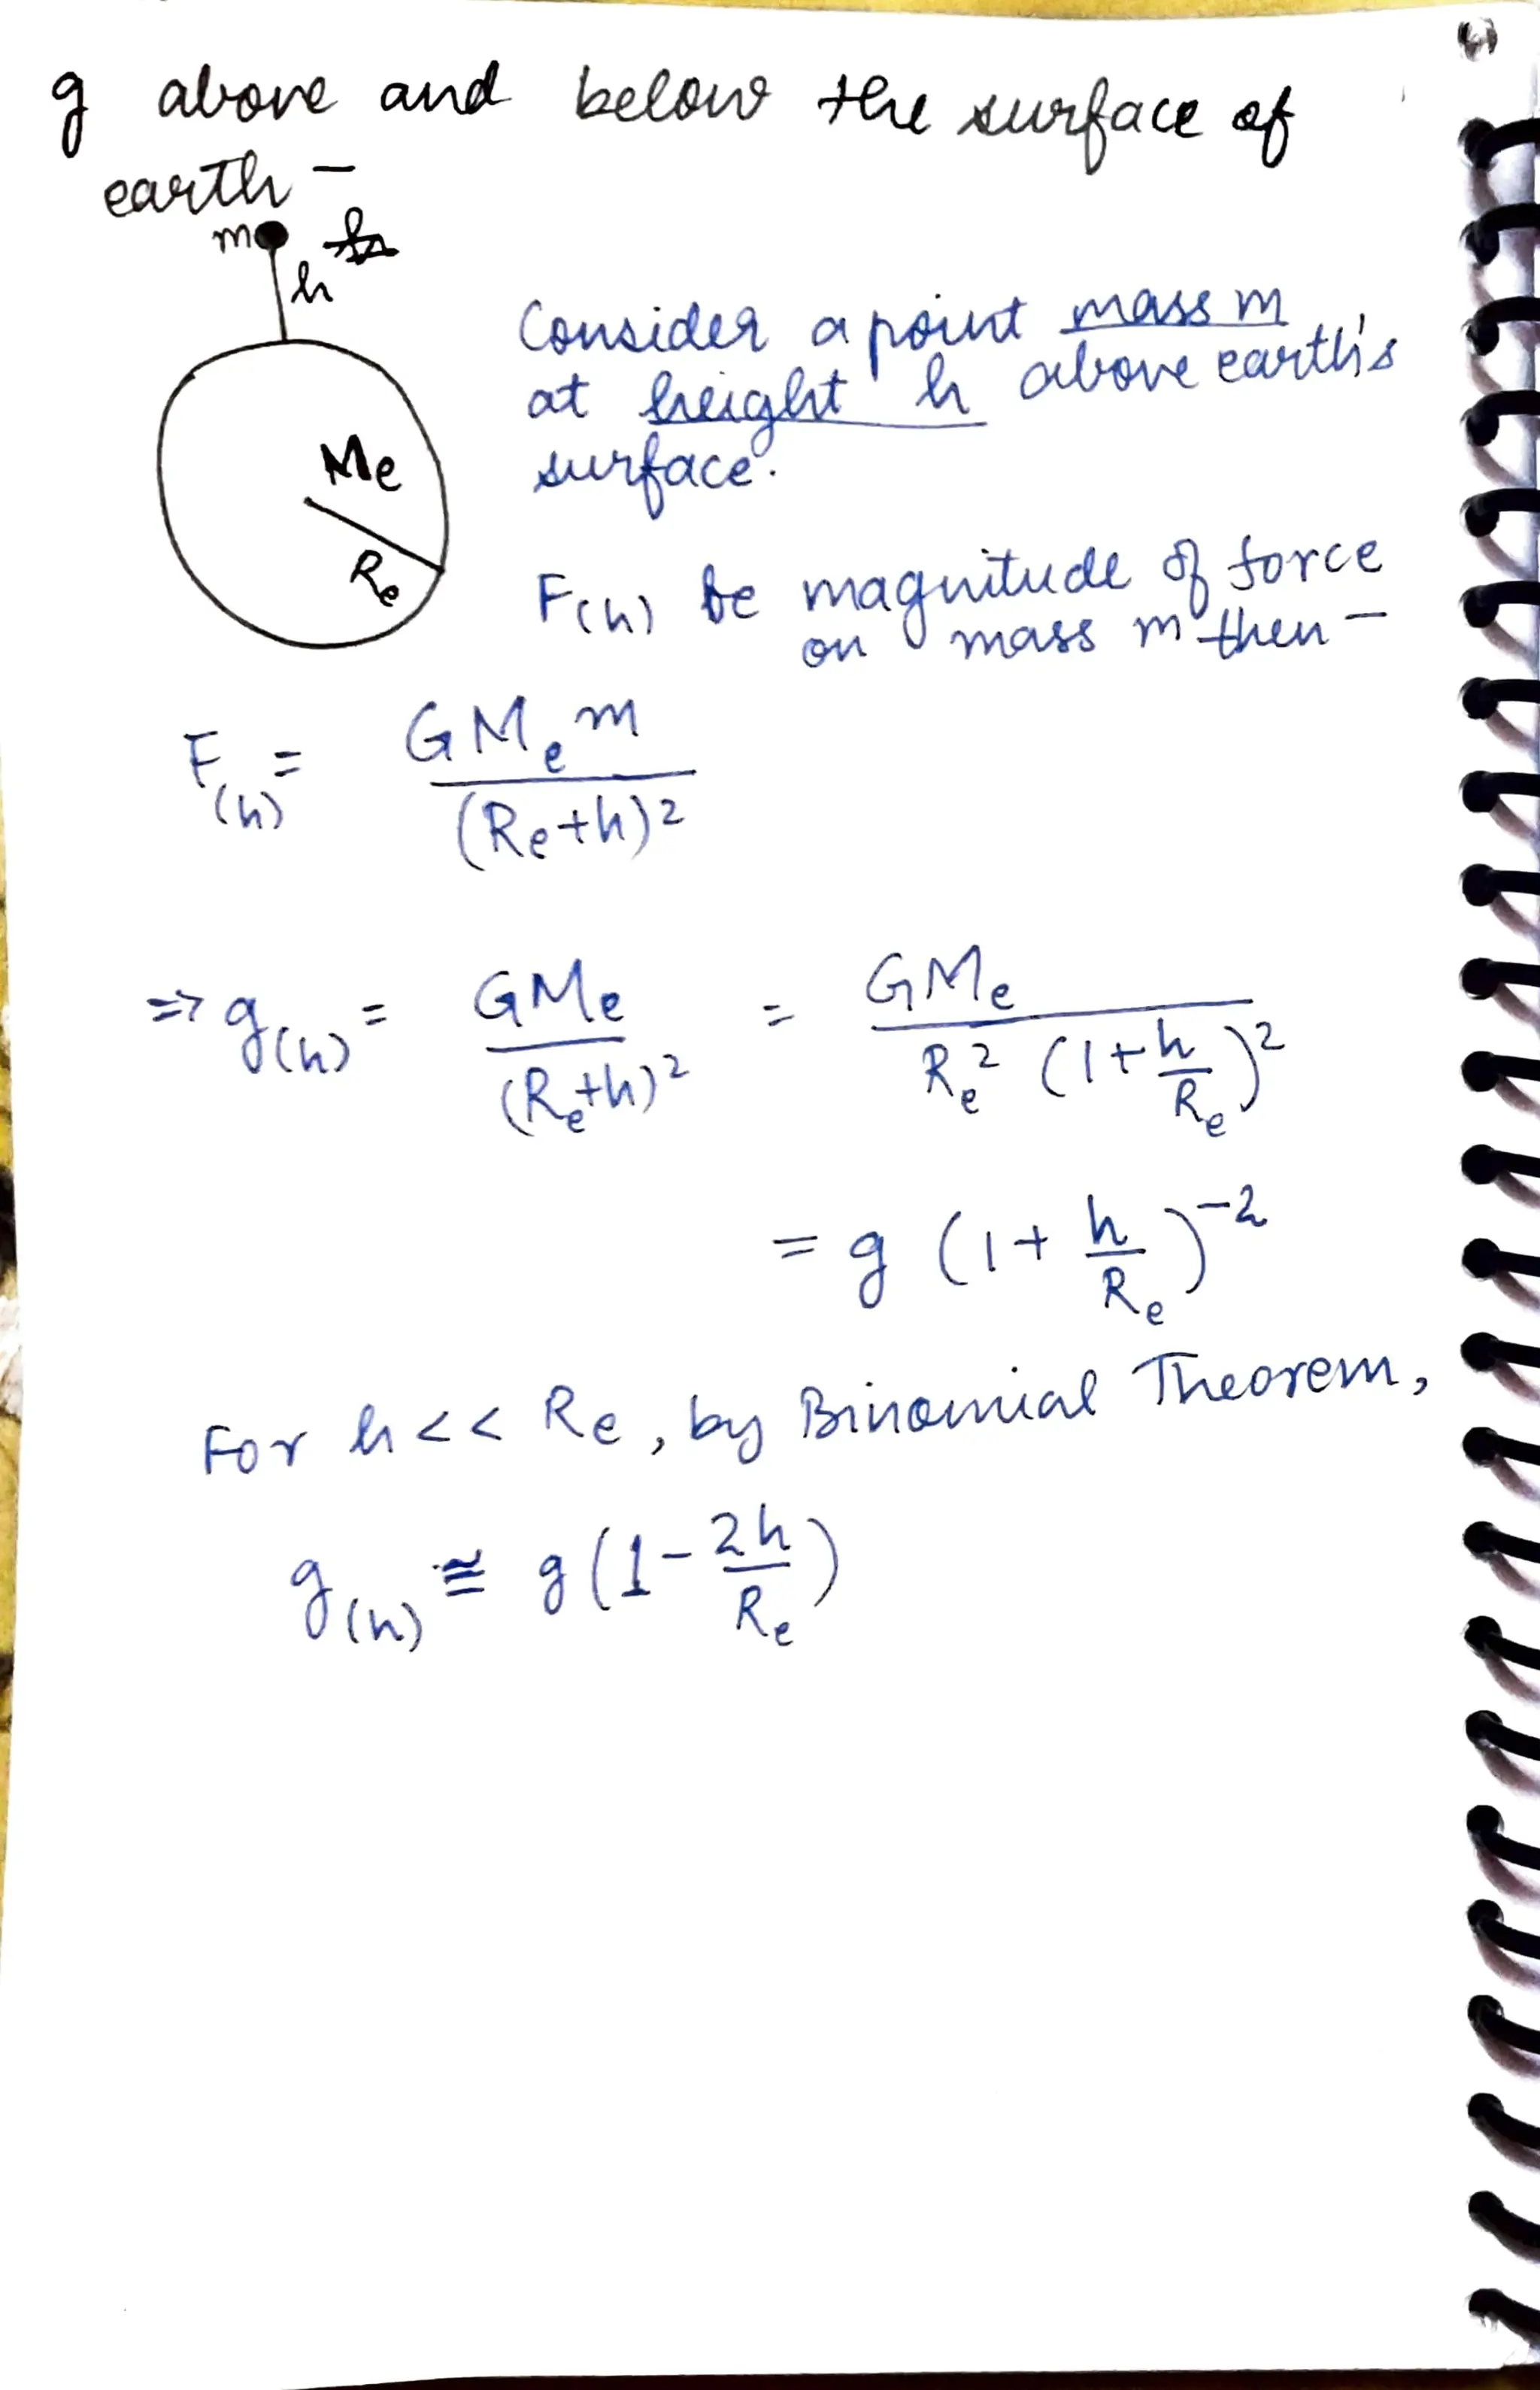 g above and below the surface of
earth -
m
h
Me
Re
Consider a point mass m
at height h above earth's
surface.
F(h) be magnitude of force
on mass m then -
F(h) = GMem / (Re+h)²
=> g(h) = GMe / (Re+h)² = GMe / Re² (1+h/Re)²
= g (1+ h/Re)⁻²
For h << Re, by Binomial Theorem,
g(h) ≅ g(1- 2h/Re)